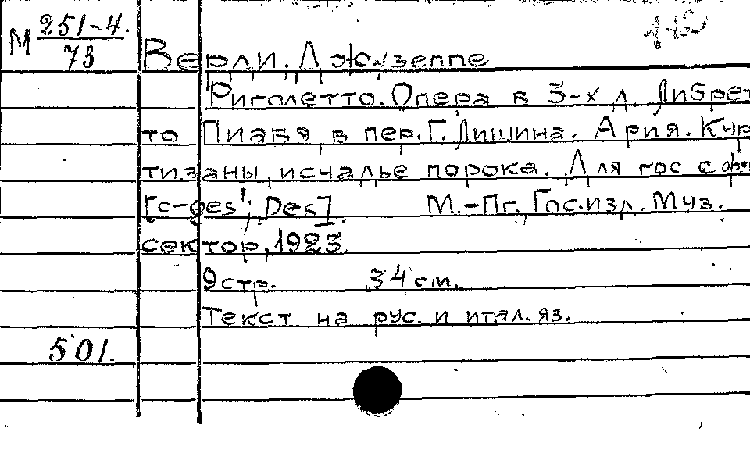 М 251-4.
73
Верди, Джузеппе
Риголетто. Опера в 3-х д. Либрет
то Пиавэ, в пер. Г. Лишина. Ария. Кур
тизаны, исчадье порока. Для гос с ф-
[c-ges'; Des]. М.-Пг., Гос. изд. Муз.
сектор, 1923.
9 стр. 34 см.
Текст на рус. и итал. яз.
501.